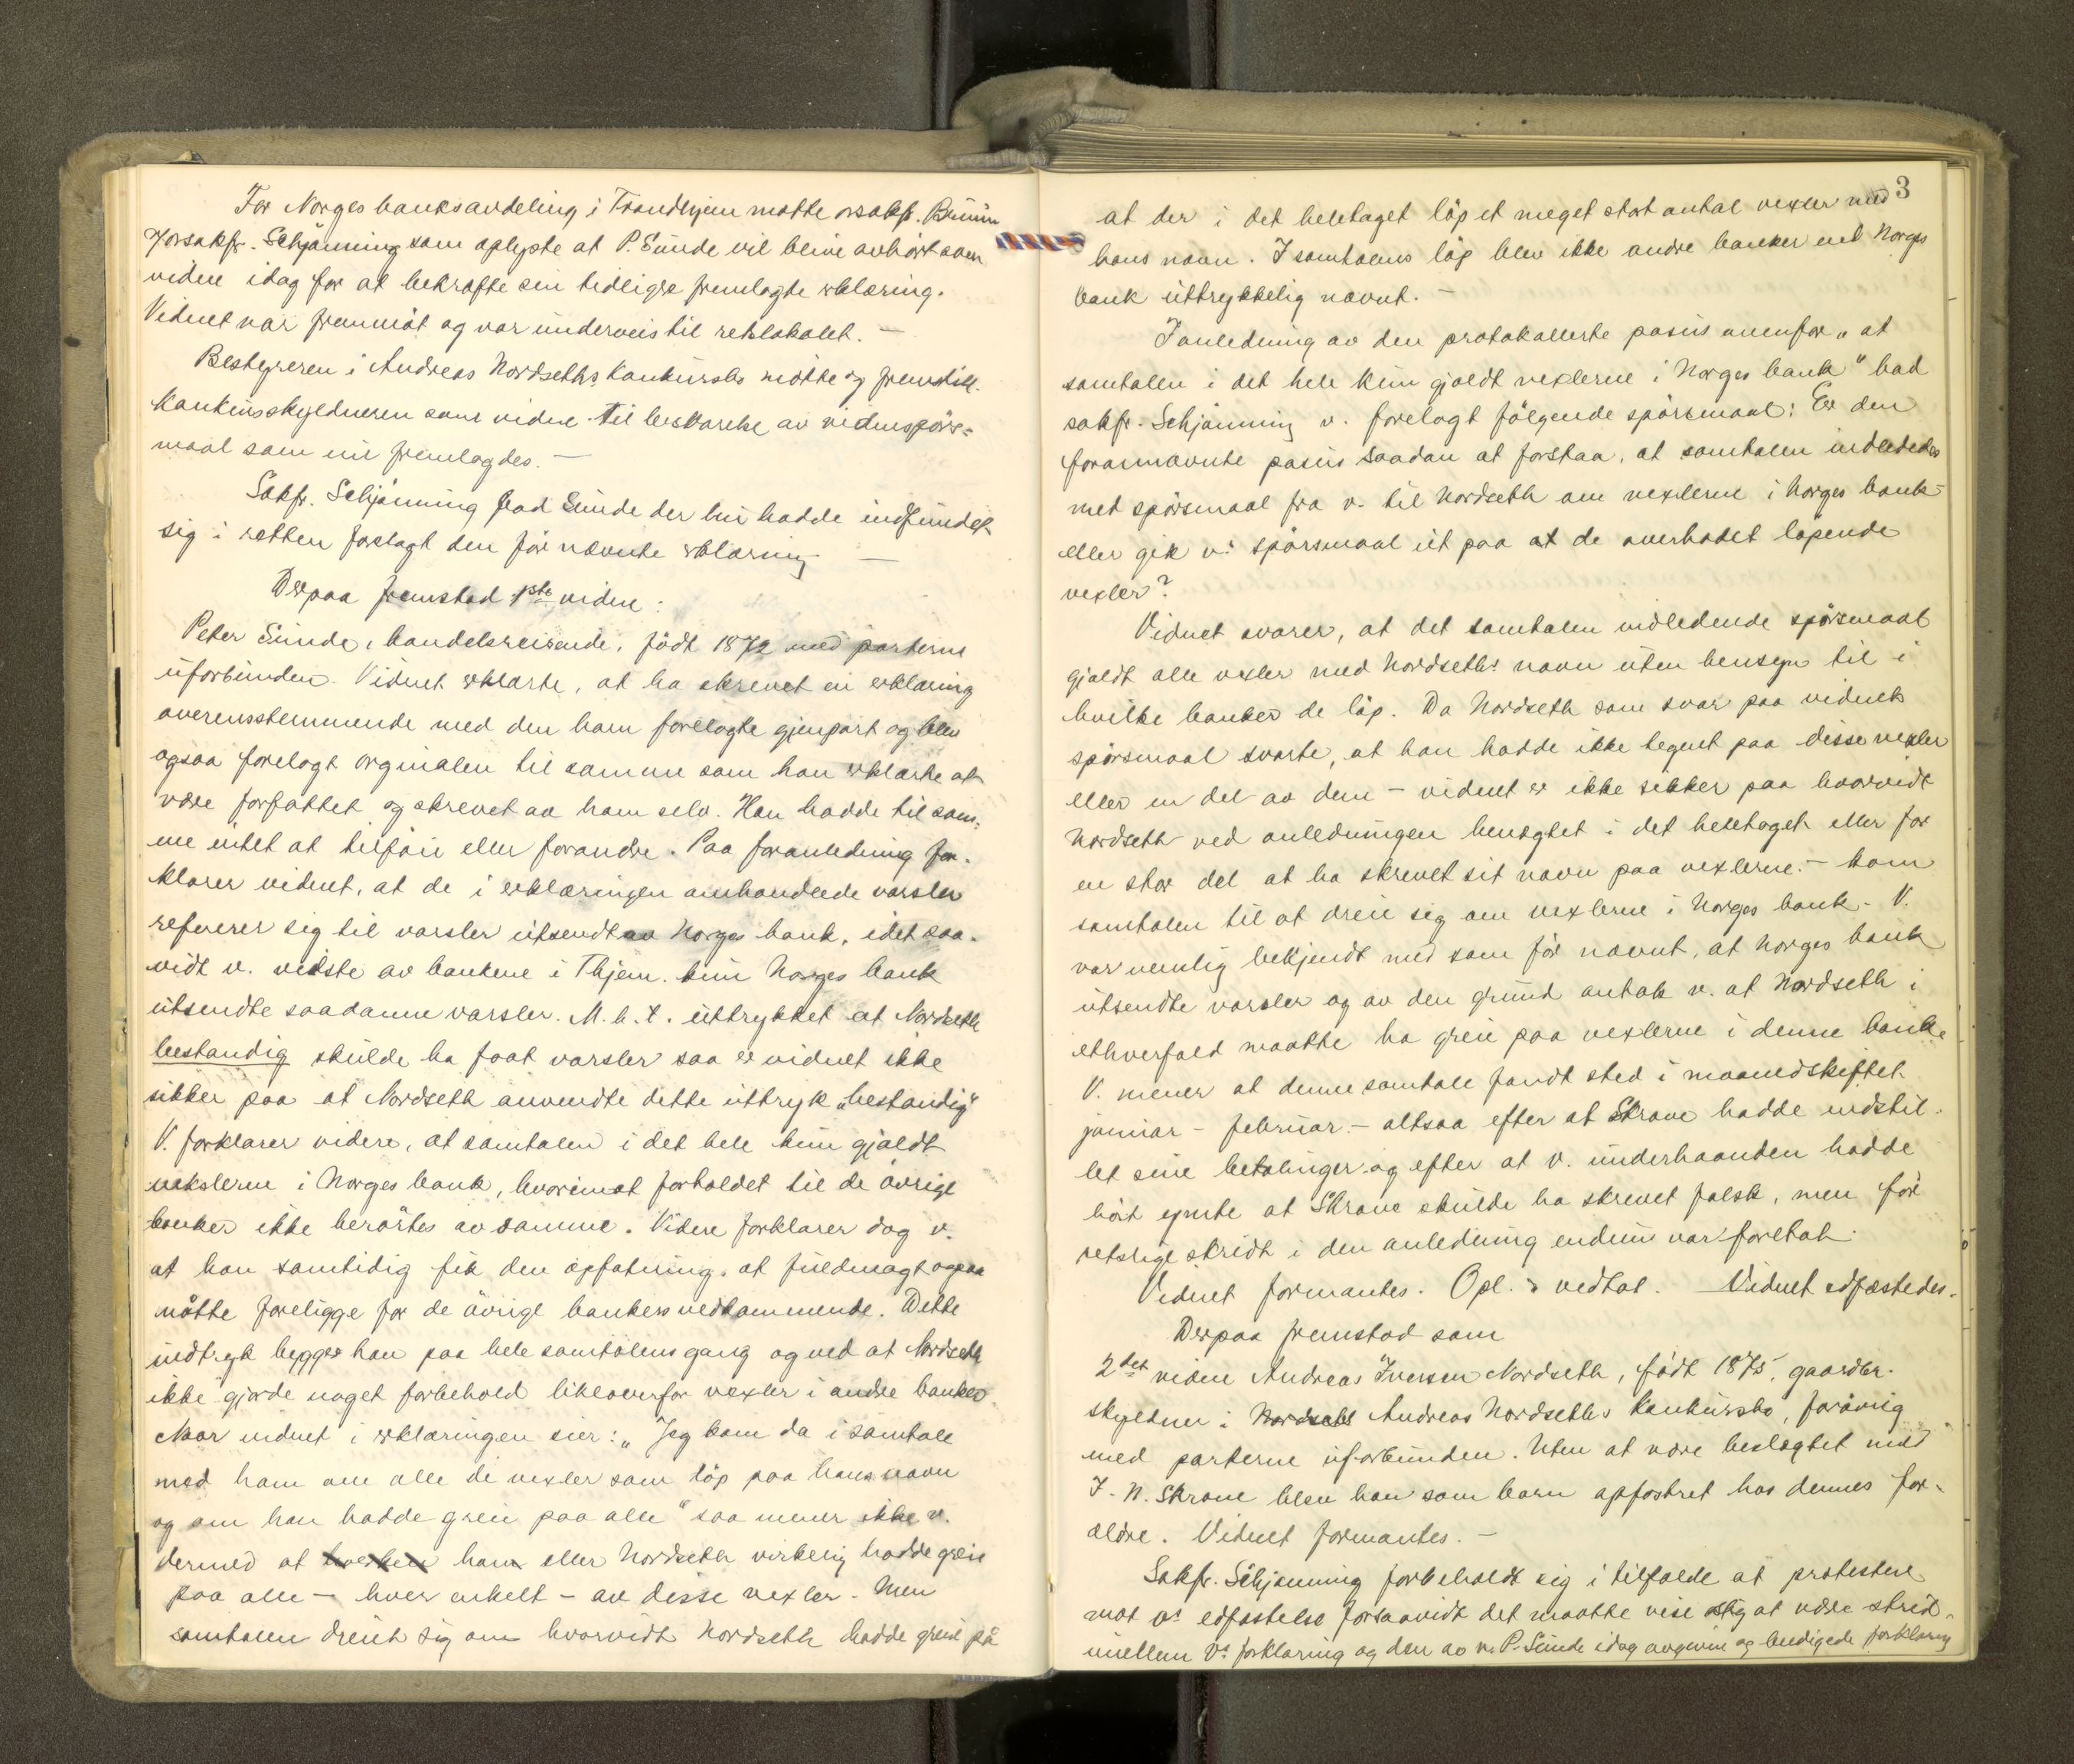 For Norges banksavdeling i Trondhjem møtte orsakfr.
v/orsakfr. Schjønning som oplyste at P. Sunde vil blive avhørt som
vidne idag for at bekræfte sin tidligre fremlagte erklæring.
Vidnet var fremmøt og var underveis til retslokalet. —
Bestyreren i Andreas Nordseths Konkursbo møtte og fremstill.
konkursskyldneren som vidne til besvarelse av vidnespørs-
maal som nu fremlagdes. —
Sakfr. Schjønning bad Sunde der nu hadde indfundet
sig i retten forelagt den før nævnte erklæring —
Derpaa fremstod 1ste vidne:
Peter Sunde, handelsreisende, født 1872 med parterne
uforbunden. Vidnet erklærte, at ha skrevet en erklæring
overensstemmende med den ham forelagte gjenpart og blev
ogsaa forelagt orginalen til samme som han erklærte at
være forfattet og skrevet av ham selv. Han hadde til sam-
me intet at tilføie eller forandre. Paa foranledning for-
klarer vidnet, at de i erklæringen omhandlede varsler
referer sig til varsler utsendt av Norges bank, idet saa-
vidt v. vidste av bankene i Thjem. kun Norges bank
utsendte saadanne varsler. M.h.t. uttrykket at Nordseth
bestandig skulde ha faat varsler saa er vidnet ikke
sikker paa at Nordseth anvendte dette uttryk „bestandig"
V. forklarer videre, at samtalen i det hele kun gjaldt
vekslerne i Norges bank, hvorimot forholdet til de øvrige
banker ikke berørtes av samme. Videre forklarer dog v.
at han samtidig fik den opfatning, at fuldmagt ogsaa
måtte foreligge for de øvrige bankers vedkommende. Dette
indtryk bygger han paa hele samtalens gang og ved at Nordseth
ikke gjorde noget forbehold likeoverfor vexler i andre banker.
Naar vidnet i erklæringen sier: „Jeg kom da i samtale
med ham om alle de vexler som løp paa hans navn
og om han hadde greie paa alle" saa mener ikke v.
dermed at hverken ham eller Nordseth virkelig hadde greie
paa alle — hver enkelt — av disse vexler. Men
samtalen dreiet sig om hvorvidt Nordseth hadde greie på
3
at der i det heletaget løp et meget stort antal vexler med
hans navn. I samtalens løp blev ikke andre banker end Norges
bank uttrykkelig nævnt. —
I anledning av den protokollerte passus ovenfor „at
samtalen i det hele kun gjaldt vexlerne i Norges bank" bad
sakfr. Schjønning v. forelagt følgende spørsmaal: Er den
forannævnte passus saadan at forstaa, at samtalen indlededes
med spørsmaal fra v. til Nordseth om vexlerne i Norges bank
eller gik v's spørsmaal ut paa at de overhodet løpende
vexler?
Vidnet svarer, at det samtalen indledende spørsmaal
gjaldt alle vexler med Nordseths navn uten hensyn til i
hvilke banker de løp. Da Nordseth som svar paa vidnets
spørsmaal svarte, at han hadde ikke tegnet paa disse vexler
eller en del av dem — vidnet er ikke sikker paa hvorvidt
Nordseth ved anledningen benegtet i det heletaget eller for
en stor del at ha skrevet sit navn paa vexlerne. — kom
samtalen til at dreie sig om vexlerne i Norges bank. V.
var nemlig bekjendt med som før nævnt, at Norges bank
utsendte varsler og av den grund antok v. at Nordseth i
ethverfald maatte ha greie paa vexlerne i denne bank.
V. mener at denne samtale fandt sted i maanedskiftet
januar – februar – altsaa efter at Skrove hadde indstil-
let sine betalinger og efter at v. underhaanden hadde
hørt ymte at Skrove skulde ha skrevet falsk, men før
retslige skridt i den anledning endnu var foretat.
Vidnet formantes. Opl. & vedtat. Vidnet edfæstedes.
Derpaa fremstod som
2det vidne Andreas Iversen Nordseth, født 1875, gaardbr.
skyldner i Nordseth Andreas Nordseths Konkursbo, forøvrig
med parterne uforbunden. Uten at være beslægtet med
J. N. Skrove blev han som barn opfostret hos dennes for-
ældre. Vidnet formantes. —
Sakfr. Schjønning forbeholdt sig i tilfælde at protestere
mot v's edfæstelse forsaavidt det maatte vise sig at være strid
imellem V's forklaring og den av v. P. Sunde idag avgivne og beedigede forklaring